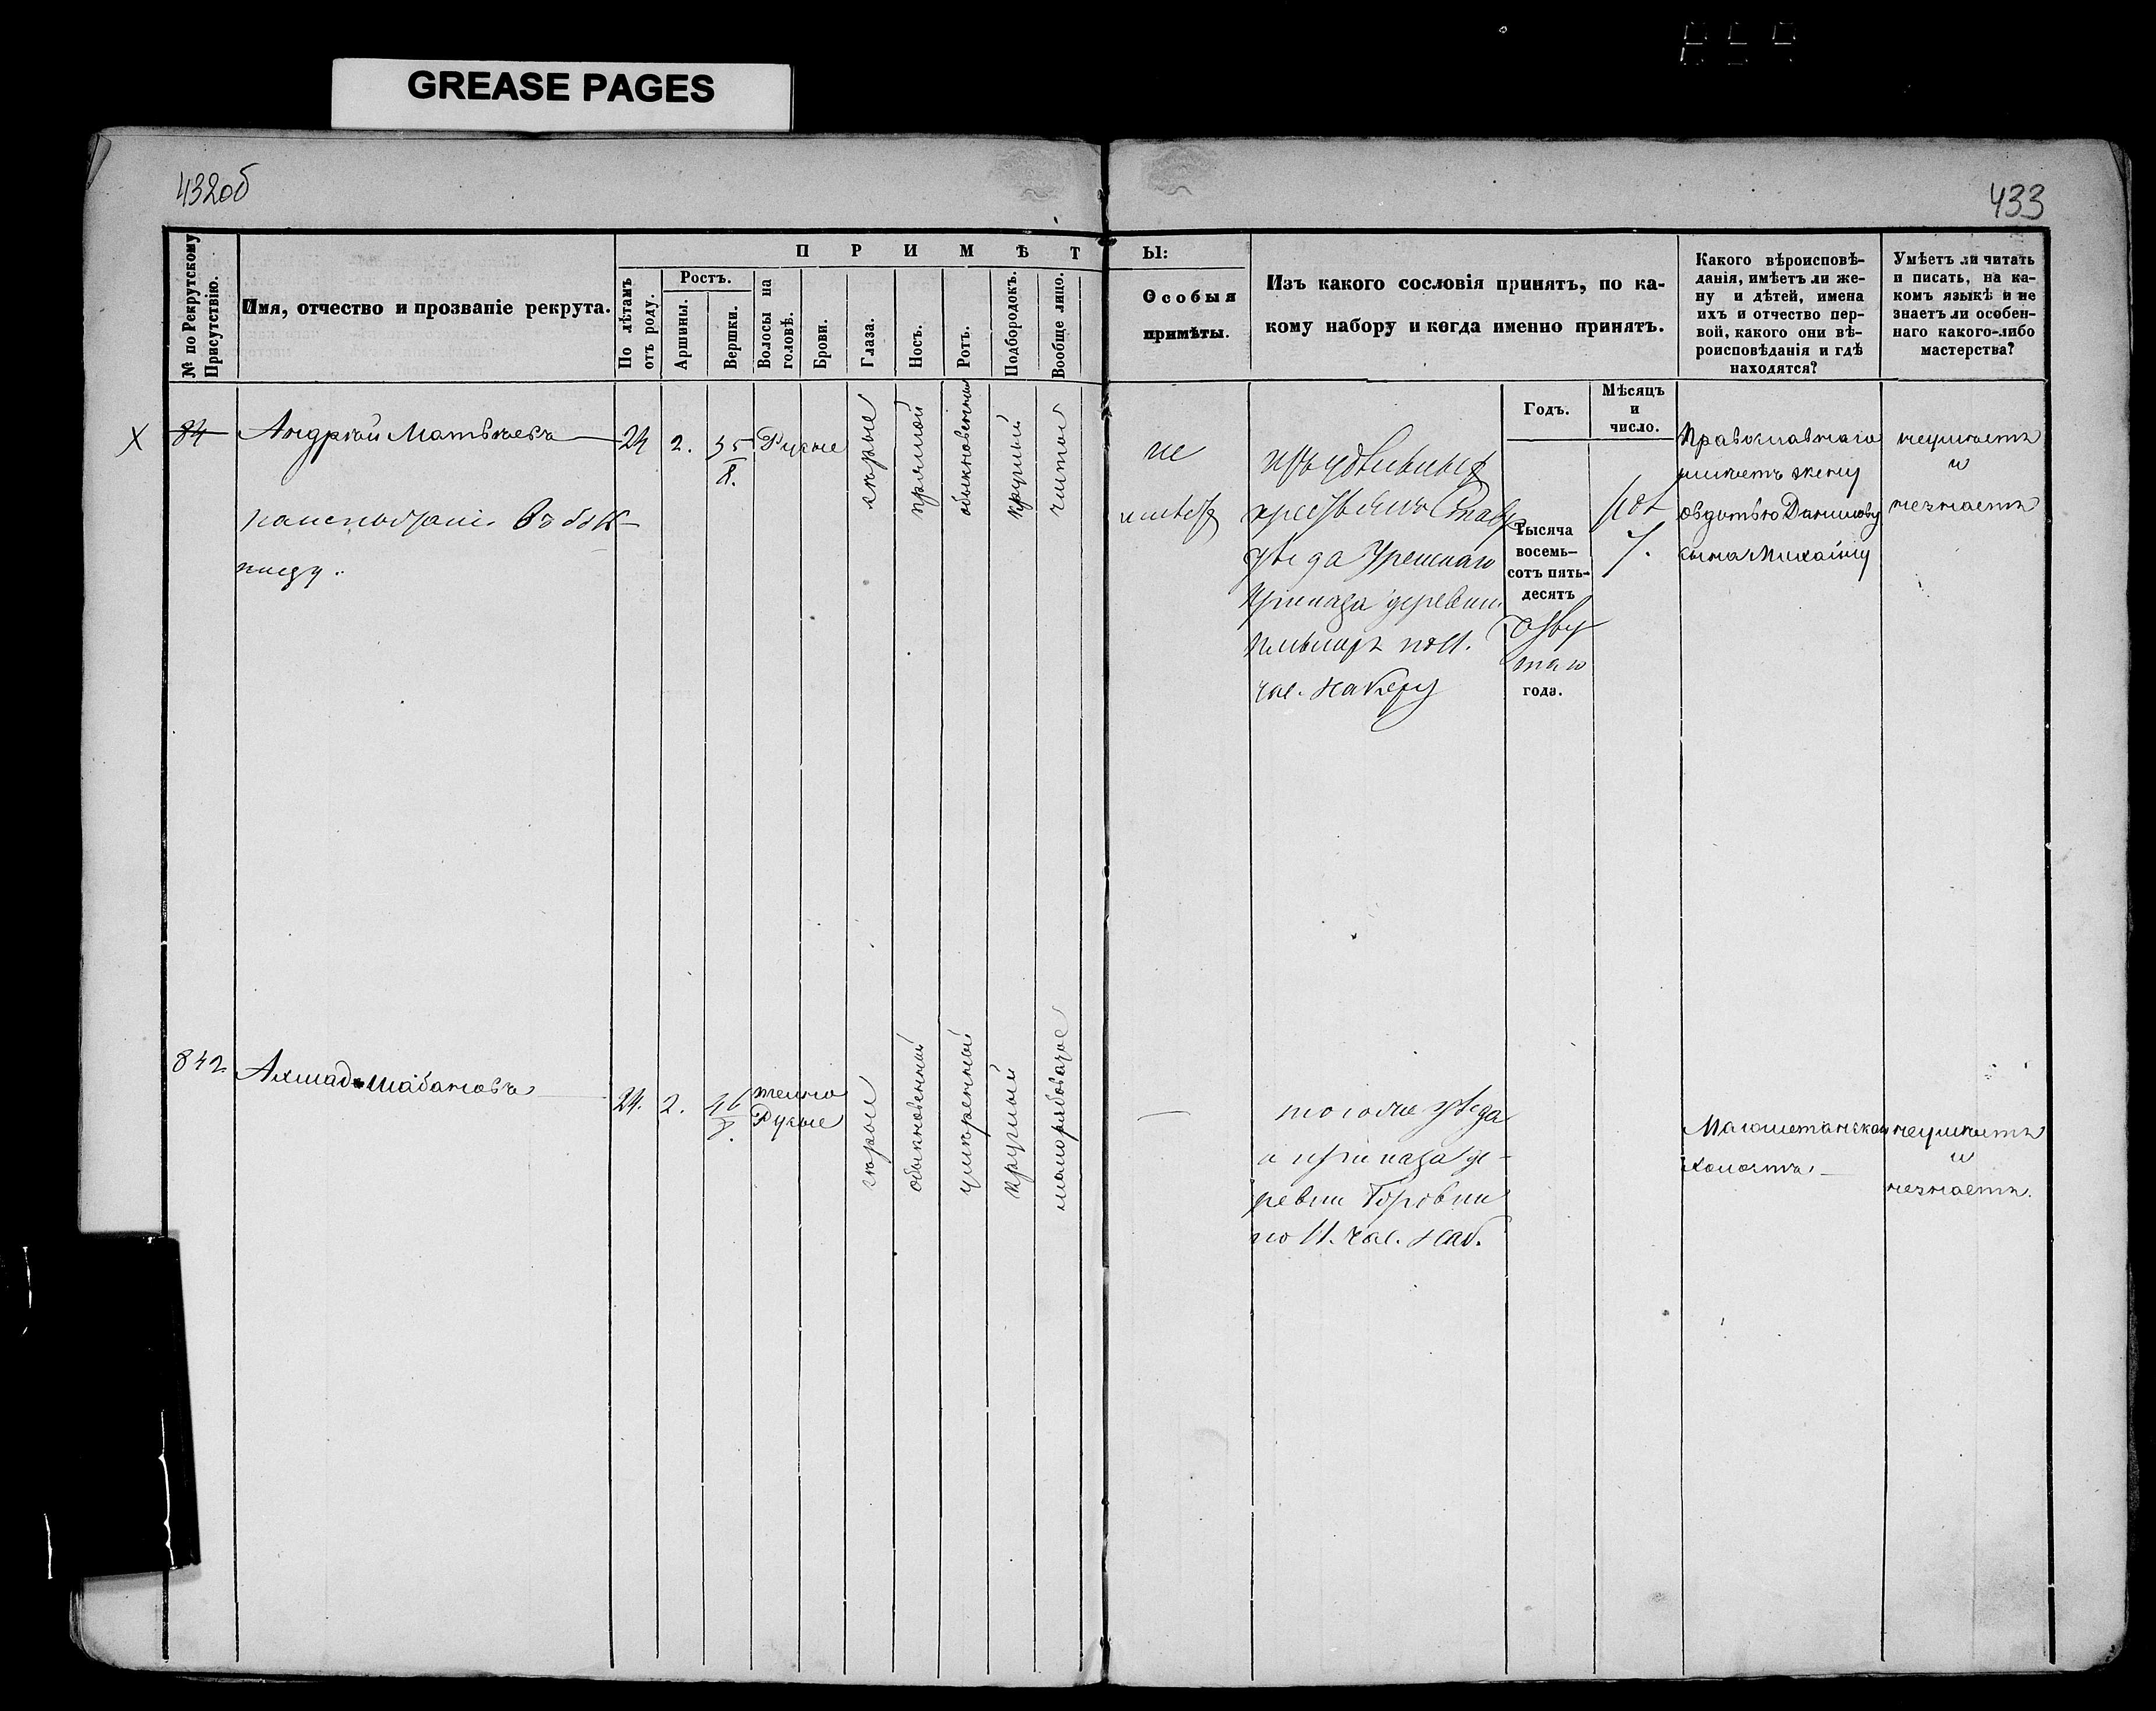 GREASE PAGES
432об
433
№ по Рекрутскому Присутствію.
Имя, отчество и прозваніе рекрута.
П Р И М Ѣ Т Ы:
По лѣтамъ отъ роду.
Ростъ.
Аршины.
Вершки.
Волосы на головѣ.
Брови.
Глаза.
Носъ.
Ротъ.
Подбородокъ.
Вообще лицо.
Особыя
примѣты.
Изъ какого сословія принятъ, по ка-
кому набору и когда именно принятъ.
Какого вѣроисповѣ-
данія, имѣетъ ли же-
ну и дѣтей, имена
ихъ и отчество пер-
вой, какого они вѣ-
роисповѣданія и гдѣ
находятся?
Умѣетъ ли читать
и писать, на ка-
комъ языкѣ и не
знаетъ ли особен-
наго какого-либо
мастерства?
Годъ.
Мѣсяцъ
и
число.
X
84
Андрей Матвѣевъ
24
2.
35/8.
Русые
сѣрые
прямой
обыкновенный
круглый
чистое
не
имѣетъ
изъ удѣльныхъ
крестьянъ Став
уѣзда
приказа деревни
по 11.
час. набору
Тысяча
восемь-
сотъ пять-
десятъ
года.
7.
Православнаго
имѣетъ жену
Овдотью Данилову
сына Михайлу
неумѣетъ
и
незнаетъ
книгу.
842
Ахмадъ Шабановъ
24.
2.
темно
Русые
сѣрые
обыкновенный
умѣренный
круглый
малорябоватое
тогоже уѣзда
и приказа де-
ревни
по 11. час. наб.
Магометанскаго
холостъ
неумѣетъ
и
незнаетъ.